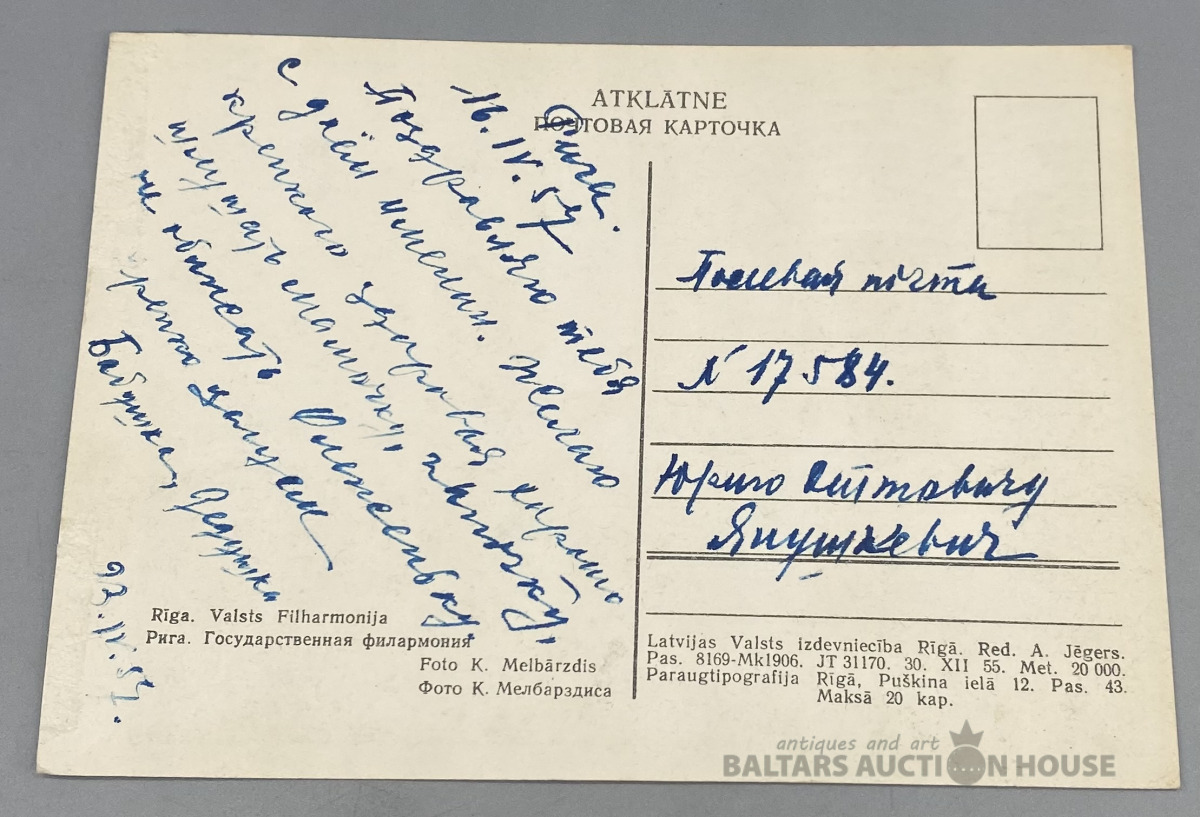 ATKLĀTNE
ПОЧТОВАЯ КАРТОЧКА
Рига.
16.IV.57
Поздравляю тебя
с днём имении. Желаю
крепкого здоровья хорошо
слушать мамочку, папочку,
не обижать
крепко целуем
Бабушка, Дедушка
23.IV.57.
Полевая почта
N 17584.
Юрию Оттовичу
Янушкевич
Rīga. Valsts Filharmonija
Рига. Государственная филармония
Foto K. Melbārzdis
Фото К. Мелбарздиса
Latvijas Valsts izdevniecība Rīgā. Red. A. Jēgers.
Pas. 8169-Mk1906. JT 31170. 30. XII 55. Met. 20 000.
Paraugtipografija Rīgā, Puškina ielā 12. Pas. 43.
Maksā 20 kap.
antiques and art
BALTARS AUCTION HOUSE